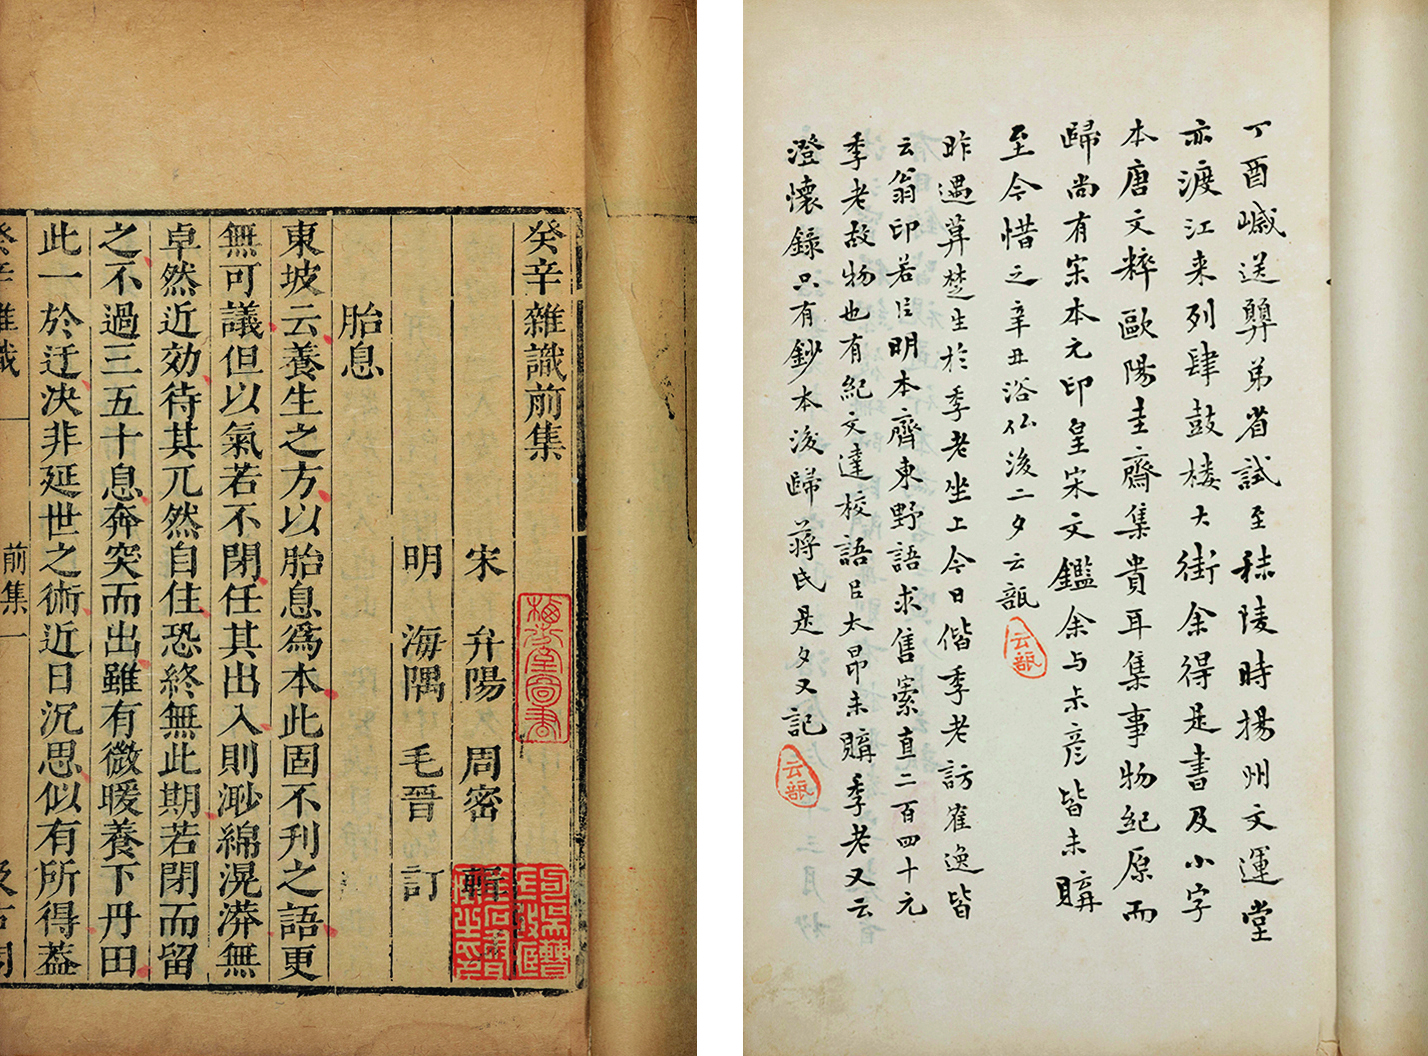 癸辛雜識前集
宋 弁陽 周密 輯
明 海隅 毛晉 訂
胎息
東坡云養生之方以胎息爲本此固不刊之語更
無可議但以氣若不閉任其出入則渺綿滉漭無
卓然近効待其兀然自住恐終無此期若閉而留
之不過三五十息奔突而出雖有微暖養下丹田
此一於迂決非延世之術近日沉思似有所得葢
癸辛雜識
前集
一
汲古閣
丁酉嵗送弟省試至秣陵時揚州文運堂
亦渡江来列肆鼓楼大街余得是書及小字
本唐文粹歐陽圭齋集貴耳集事物紀原而
歸尚有宋本元印皇宋文鑑余与彦皆未購
至今惜之辛丑浴仏後二夕云瓻
云瓻
昨遇楚生於季老坐上今日偕季老訪崔逸皆
云翁印若目明本齊東野語求售索直二百四十元
季老故物也有紀文達校語目太昂未購季老又云
澄懷録只有鈔本後歸蒋氏是夕又記
云瓻